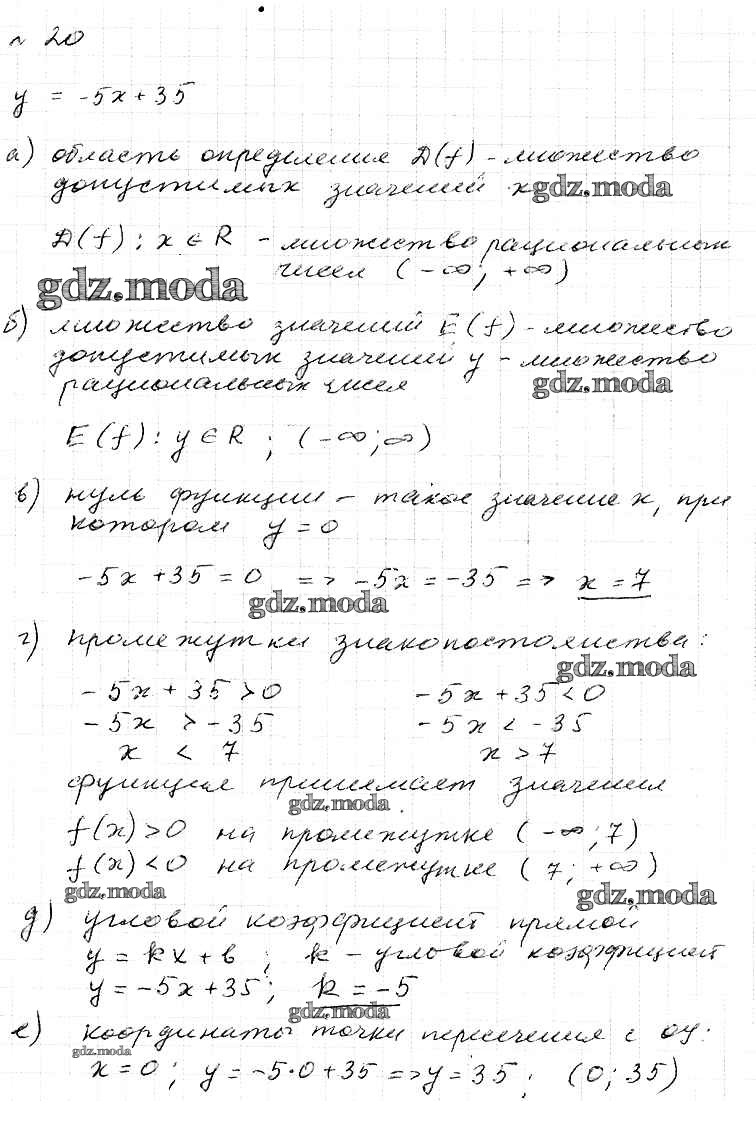 № 20
y = -5x + 35
а) область определения D(f) - множество
допустимых значений x gdz.moda
D(f): x ∈ R - множество рациональных
чисел (-∞; +∞)
gdz.moda
б) множество значений E(f) - множество
допустимых значений y - множество
рациональных чисел gdz.moda
E(f): y ∈ R ; (-∞; ∞)
в) нуль функции - такое значение x, при
котором y = 0
-5x + 35 = 0 => -5x = -35 => x = 7
gdz.moda
г) промежутки знакопостоянства:
gdz.moda
-5x + 35 > 0 -5x + 35 < 0
-5x > -35 -5x < -35
x < 7 x > 7
функция принимает значения
gdz.moda
f(x) > 0 на промежутке (-∞; 7)
f(x) < 0 на промежутке (7; +∞)
gdz.moda gdz.moda
д) угловой коэффициент прямой
y = kx + b ; k - угловой коэффициент
y = -5x + 35; k = -5
gdz.moda
е) координаты точки пересечения с oy:
gdz.moda
x = 0; y = -5·0 + 35 => y = 35; (0; 35)